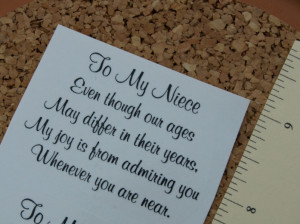 To My Niece
Even though our ages
May differ in their years,
My joy is from admiring you
Whenever you are near.
To
8
6